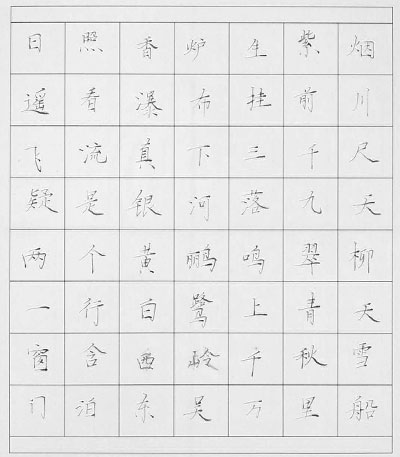 日照香炉生紫烟
遥看瀑布挂前川
飞流真下三千尺
疑是银河落九天
两个黄鹂鸣翠柳
一行白鹭上青天
窗含西岭千秋雪
门泊东吴万里船